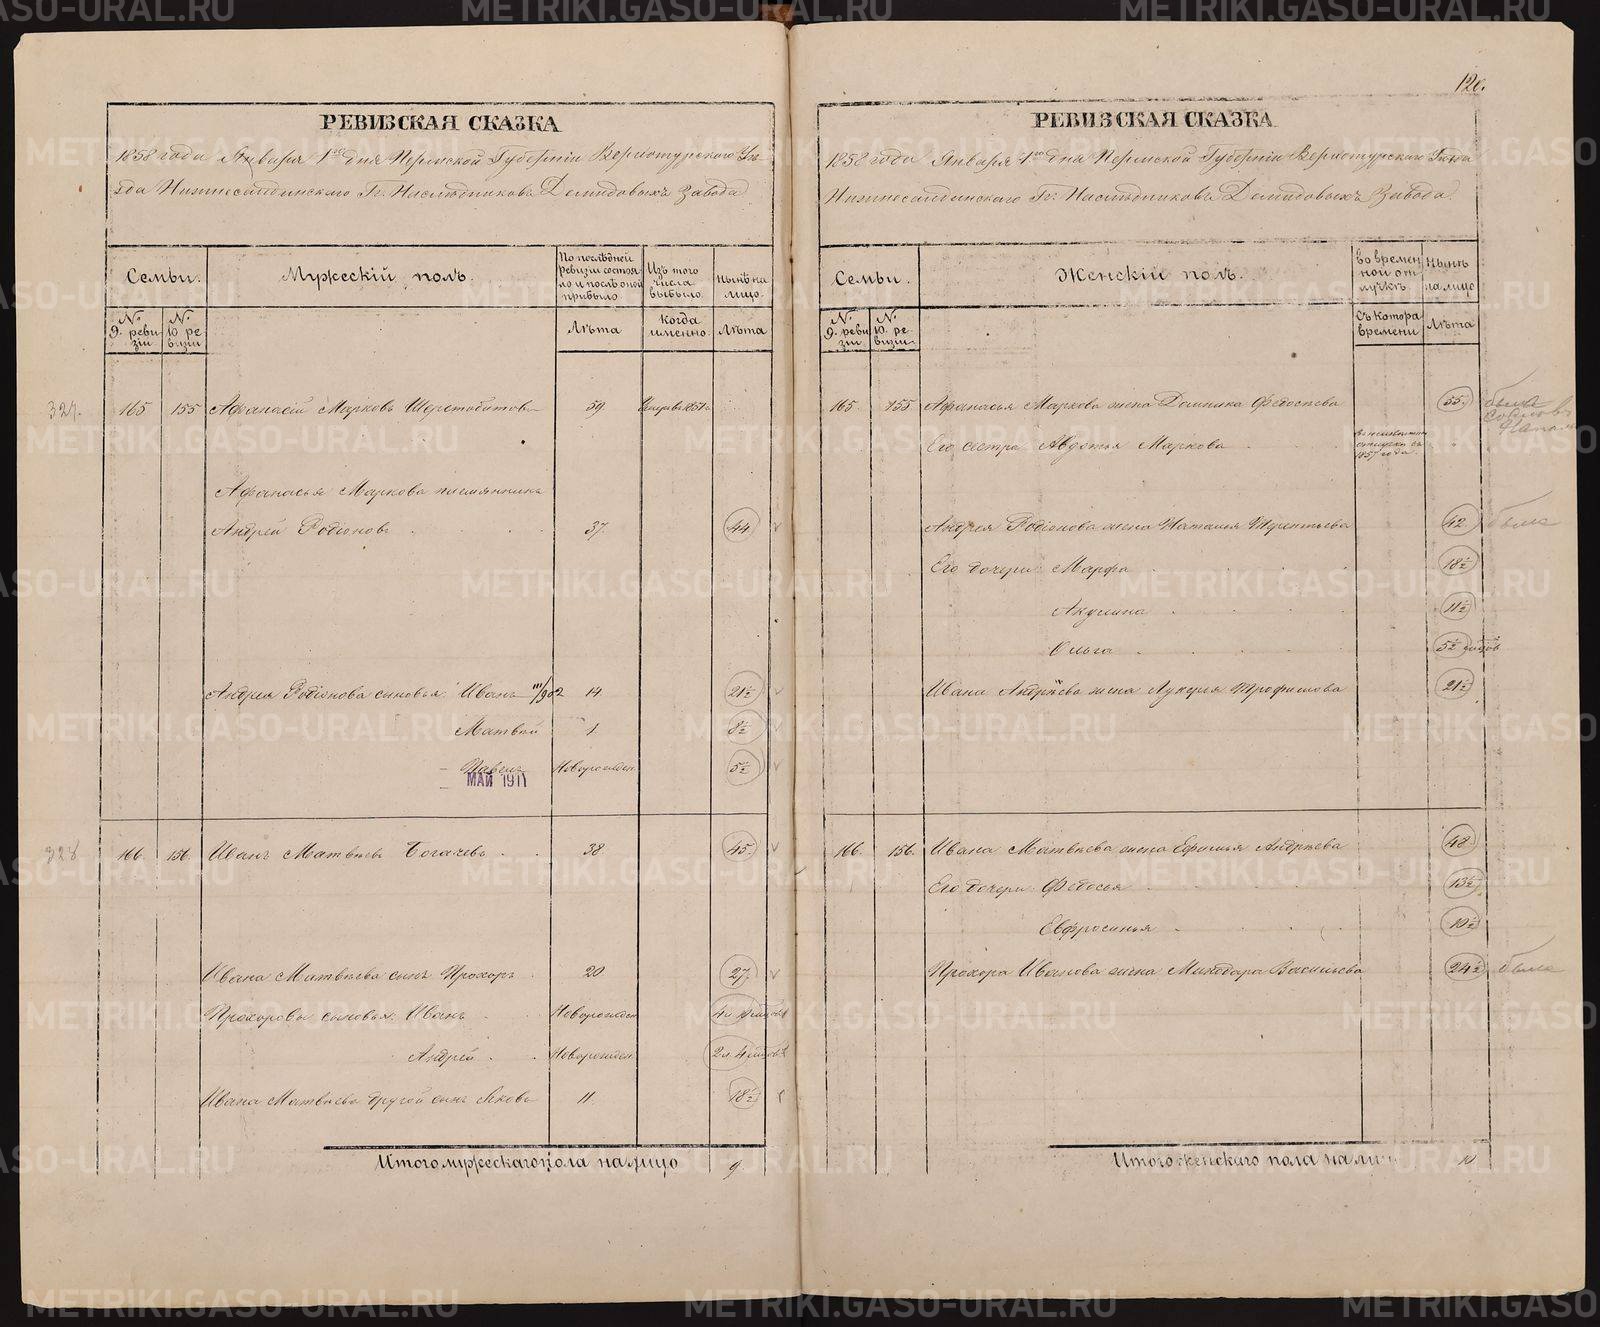 120.
РЕВИЗСКАЯ СКАЗКА
1858 года Января 1го дня Пермской Губернiи Верхотурского Уѣз
да Нижнесалдинскаго Гг. Наслѣдниковъ Демидовыхъ Завода
Семьи.
Мужескiй полъ.
По послѣдней ревизiи состоя-
ло и послѣ оной прибыло
Изъ того числа выбыло
Нынѣ на лицо.
№ 9. реви зiи
№ 10 ре визiи
Лѣта
Когда именно.
Лѣта
327.
165 155 Афанасiй Марковъ Шерстобитовъ 59.
Афанасья Маркова племянникъ
Андрей Родiоновъ 37. 44
Андрея Родiонова сыновья: Иванъ III/902 14 21½
Матвѣй 1 8½
Павелъ Новорожден 5½
МАЙ 1911
328
166. 156. Иванъ Матвѣевъ Богачевъ 38 45.
Ивана Матвѣева сынъ Прохоръ 20 27.
Прохоровы сыновья: Иванъ Новорожден
Андрей Новорожден
Ивана Матвѣева другой сынъ Яковъ 11 18½
Итого мужескаго пола на лицо 9.
РЕВИЗСКАЯ СКАЗКА
1858 года Января 1го дня Пермской Губернiи Верхотурскаго Уѣзда
Нижнесалдинскаго Гг. Наслѣдниковъ Демидовыхъ Завода.
Семьи.
Женскiй полъ.
Во времен ной от лучкѣ
Нынѣ на лицо
№ 9. реви зiи.
№ 10. ре визiи.
Съ котора времени
Лѣта
165. 155. Афанасья Маркова жена Домника Федосѣева 55. была
Его сестра Авдотья Маркова 1857 года.
Андрея Родiонова жена Наталья Терентьева 42 была
Его дочери: Марфа 18½
Акулина 11½
Ольга 5½
Ивана Андрѣева жена Лукерья Трофимова 21½
166. 156. Ивана Матвѣева жена Ефимья Андрѣева 48.
Его дочери: Федосья 13½
Евфросинья 10½
Прохора Иванова жена Минодара Васильева 24½ была
Итого женскаго пола на лицо 10
METRIKI.GASO-URAL.RU